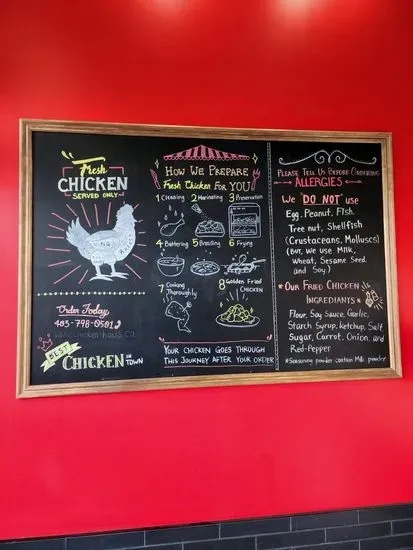 Fresh
CHICKEN
SERVED ONLY
Order Today
403-798-0501
CHICKEN-HAUS.CA
BEST
CHICKEN IN TOWN
HOW WE PREPARE
Fresh Chicken FOR YOU
1 Cleaning
2 Marinating
3 PRESERVATION
4 Battering
5 Breading
6 Frying
7 Cooking
Thoroughly
8 Golden Fried
CHICKEN
YOUR CHICKEN GOES THROUGH
THIS JOURNEY AFTER YOUR ORDER
PLEASE TELL US BEFORE ORDERING
ALLERGIES
We DO NOT use
Egg, Peanut, Fish,
Tree nut, Shellfish
(Crustaceans, Molluscs)
(BUT, WE USE MILK,
Wheat, Sesame Seed,
and Soy)
*OUR FRIED CHICKEN
INGREDIENTS*
Flour, Soy Sauce, Garlic,
Starch Syrup, Ketchup, Salt
Sugar, Carrot, Onion, and
Red-Pepper
*Seasoning powder contain Milk powder